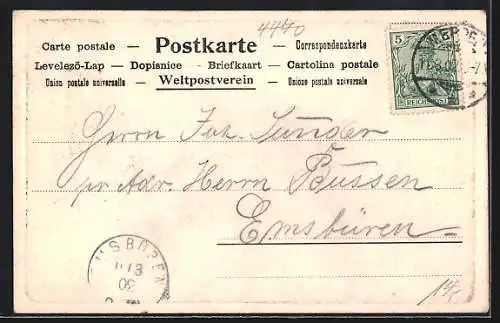 4470
Carte postale — Postkarte — Correspondenzkarte
Levelező-Lap — Dopisnice — Briefkaart — Cartolina postale
Union postale universelle — Weltpostverein — Unione postale universale
5
REICHSPOST
Herrn Joh. Sunder
pr. Adr. Herrn Bussen
Emsbüren
EMSBÜREN